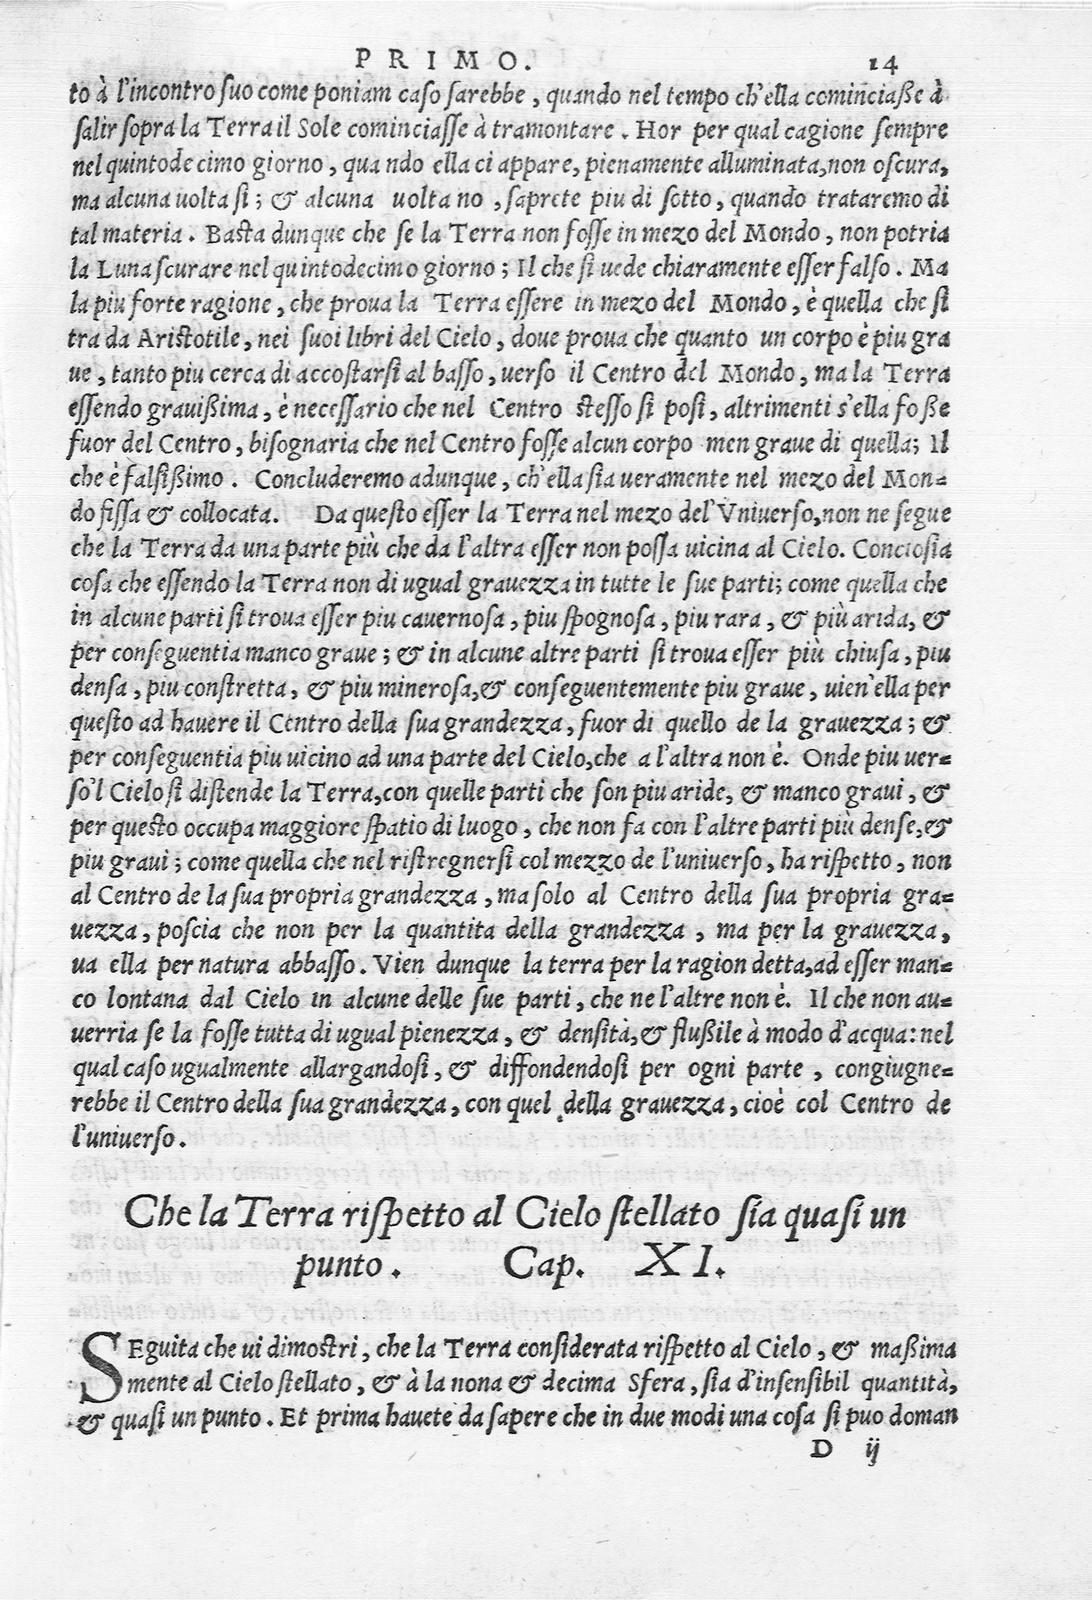 PRIMO. 14
to à l'incontro suo come poniam caso sarebbe, quando nel tempo ch'ella cominciaße à
salir sopra la Terra il Sole cominciasse à tramontare. Hor per qual cagione sempre
nel quintodecimo giorno, quando ella ci appare, pienamente alluminata, non oscura,
ma alcuna uolta si; & alcuna uolta no, saprete piu di sotto, quando trataremo di
tal materia. Basta dunque che se la Terra non fosse in mezo del Mondo, non potria
la Luna scurare nel quintodecimo giorno; Il che si uede chiaramente esser falso. Ma
la piu forte ragione, che proua la Terra essere in mezo del Mondo, è quella che si
tra da Aristotile, nei suoi libri del Cielo, doue proua che quanto un corpo è piu gra
ue, tanto piu cerca di accostarsi al basso, uerso il Centro del Mondo, ma la Terra
essendo grauißima, è necessario che nel Centro stesso si posi, altrimenti s'ella foße
fuor del Centro, bisognaria che nel Centro fosse alcun corpo men graue di quella; Il
che è falsißimo. Concluderemo adunque, ch'ella sia ueramente nel mezo del Mon=
do fissa & collocata. Da questo esser la Terra nel mezo del'Vniuerso, non ne segue
che la Terra da una parte più che da l'altra esser non possa uicina al Cielo. Conciosia
cosa che essendo la Terra non di ugual grauezza in tutte le sue parti; come quella che
in alcune parti si troua esser piu cauernosa, piu spognosa, piu rara, & più arida, &
per conseguentia manco graue; & in alcune altre parti si troua esser più chiusa, piu
densa, piu constretta, & piu minerosa, & conseguentemente piu graue, uien'ella per
questo ad hauere il Centro della sua grandezza, fuor di quello de la grauezza; &
per conseguentia piu uicino ad una parte del Cielo, che a l'altra non è. Onde piu uer=
so'l Cielo si distende la Terra, con quelle parti che son piu aride, & manco graui, &
per questo occupa maggiore spatio di luogo, che non fa con l'altre parti più dense, &
piu graui; come quella che nel ristregnersi col mezzo de l'uniuerso, ha rispetto, non
al Centro de la sua propria grandezza, ma solo al Centro della sua propria gra=
uezza, poscia che non per la quantita della grandezza, ma per la grauezza,
ua ella per natura abbasso. Vien dunque la terra per la ragion detta, ad esser man=
co lontana dal Cielo in alcune delle sue parti, che ne l'altre non è. Il che non au=
uerria se la fosse tutta di ugual pienezza, & densità, & flußile à modo d'acqua: nel
qual caso ugualmente allargandosi, & diffondendosi per ogni parte, congiugne=
rebbe il Centro della sua grandezza, con quel della grauezza, cioè col Centro de
l'uniuerso.
Che la Terra rispetto al Cielo stellato sia quasi un
punto. Cap. XI.
SEguita che ui dimostri, che la Terra considerata rispetto al Cielo, & maßima
mente al Cielo stellato, & à la nona & decima Sfera, sia d'insensibil quantità,
& quasi un punto. Et prima hauete da sapere che in due modi una cosa si puo doman
D ij